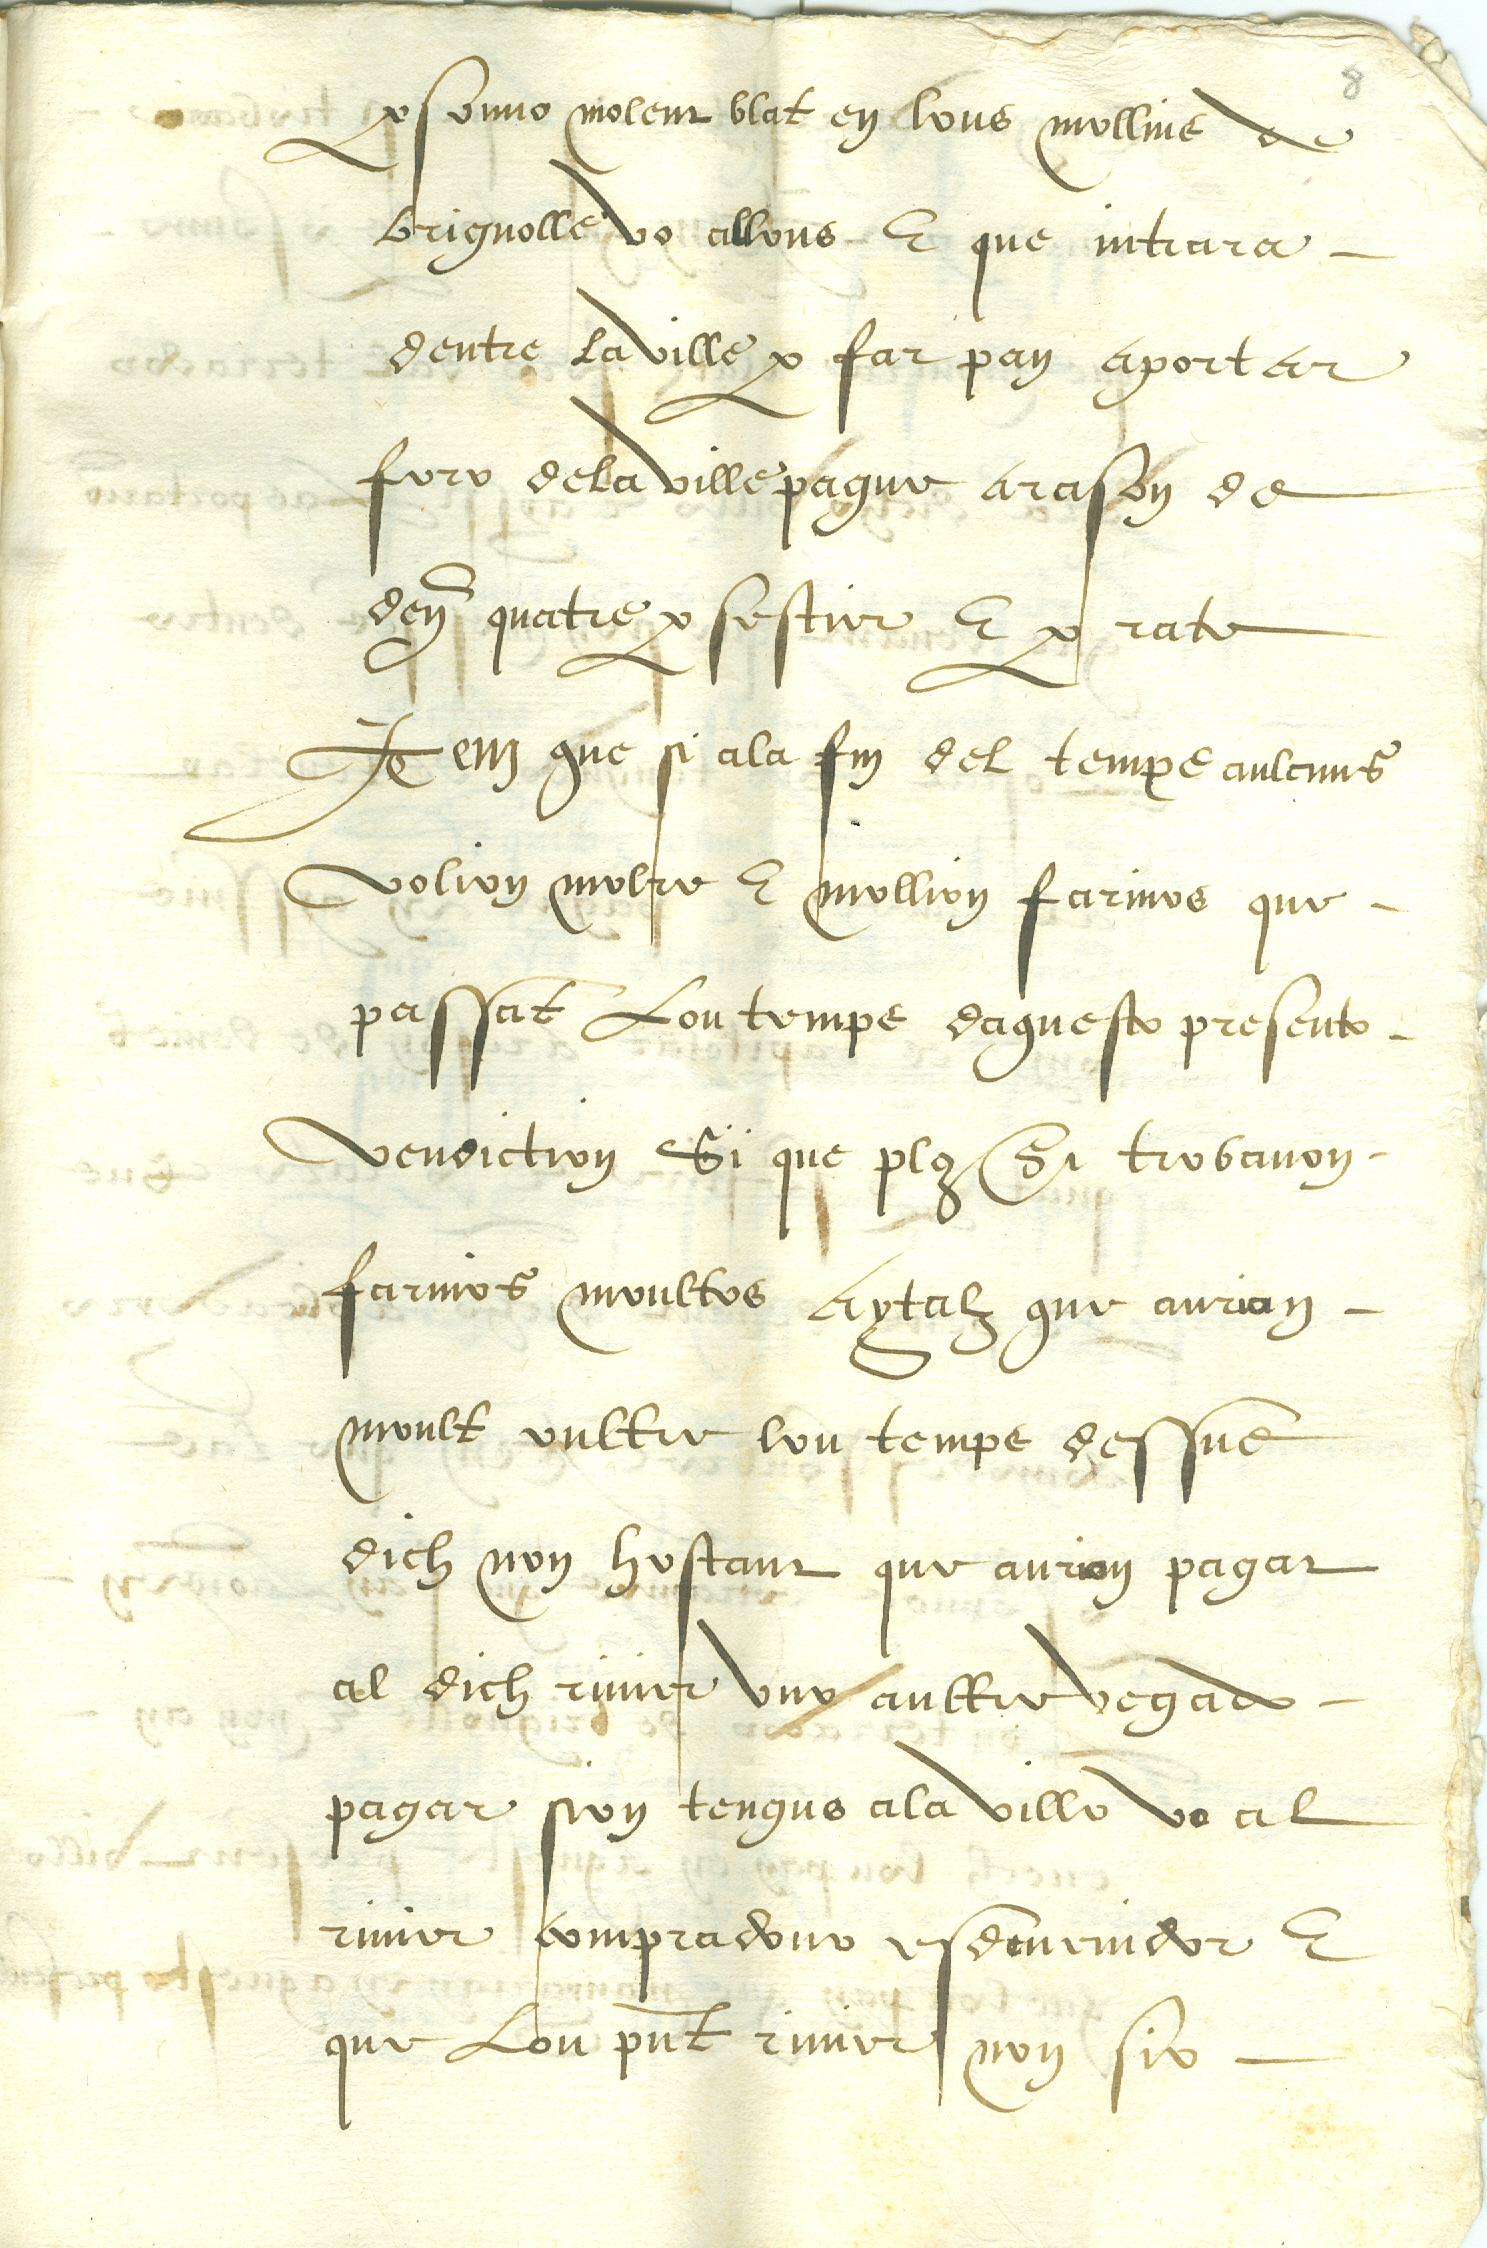 8
p sonno molent blat en lous mollins de
brignolle vo allous E que intrara
dentre la ville p far pan aportar
foro de la ville pague a rason de
den quatre p sestier E p rate
Item que si a la fin del temps aulcuns
volion molre E mollion farinos que
passat Lou temps daquesto presento
vendiction Si que plus si trobavon
farinos moultos Aytals que aurian
moult oultre lou temps dessus
dich non hostant que aurion pagat
al dich rivier uno aultre vegado
pagar sion tengus a la villo vo al
rivier compradour esdevenidor E
que Lou pnt rivier non sio